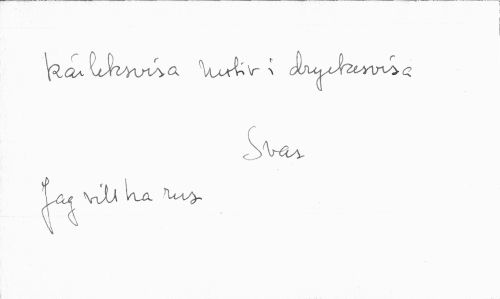 Kärleksvisa motiv i dryckesvisa
Svas
Jag vill ha rus